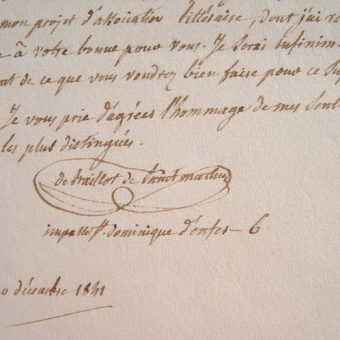 mon projet d'association littéraire, dont j'ai
à votre bonne pour vous. Je serai infinim
nt de ce que vous voudrez bien faire pour ce
Je vous prie d'agréer l'hommage de mes sent
les plus distingués.
de
impasse St. Dominique d'enfer - 6
0 décembre 1841